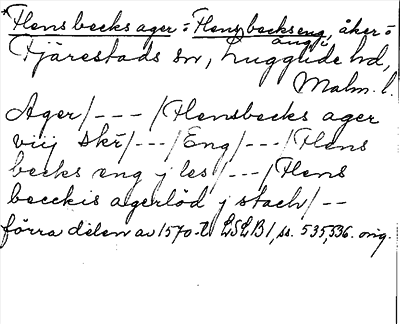 *Flensbecks ager = Flensbeckseng, åker =
äng i
Fjärestads sn, Luggude hd,
Malm. l.
Ager/---/Flensbecks ager
viij Skr̃/---/Eng/---/Flens
becks eng j les/---/Flens
becckis agerlöd j stach/--
förra delen av 1570-t. LSLB1, ss. 535, 536. orig.